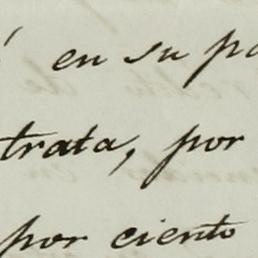 en su
trata, por
por ciento